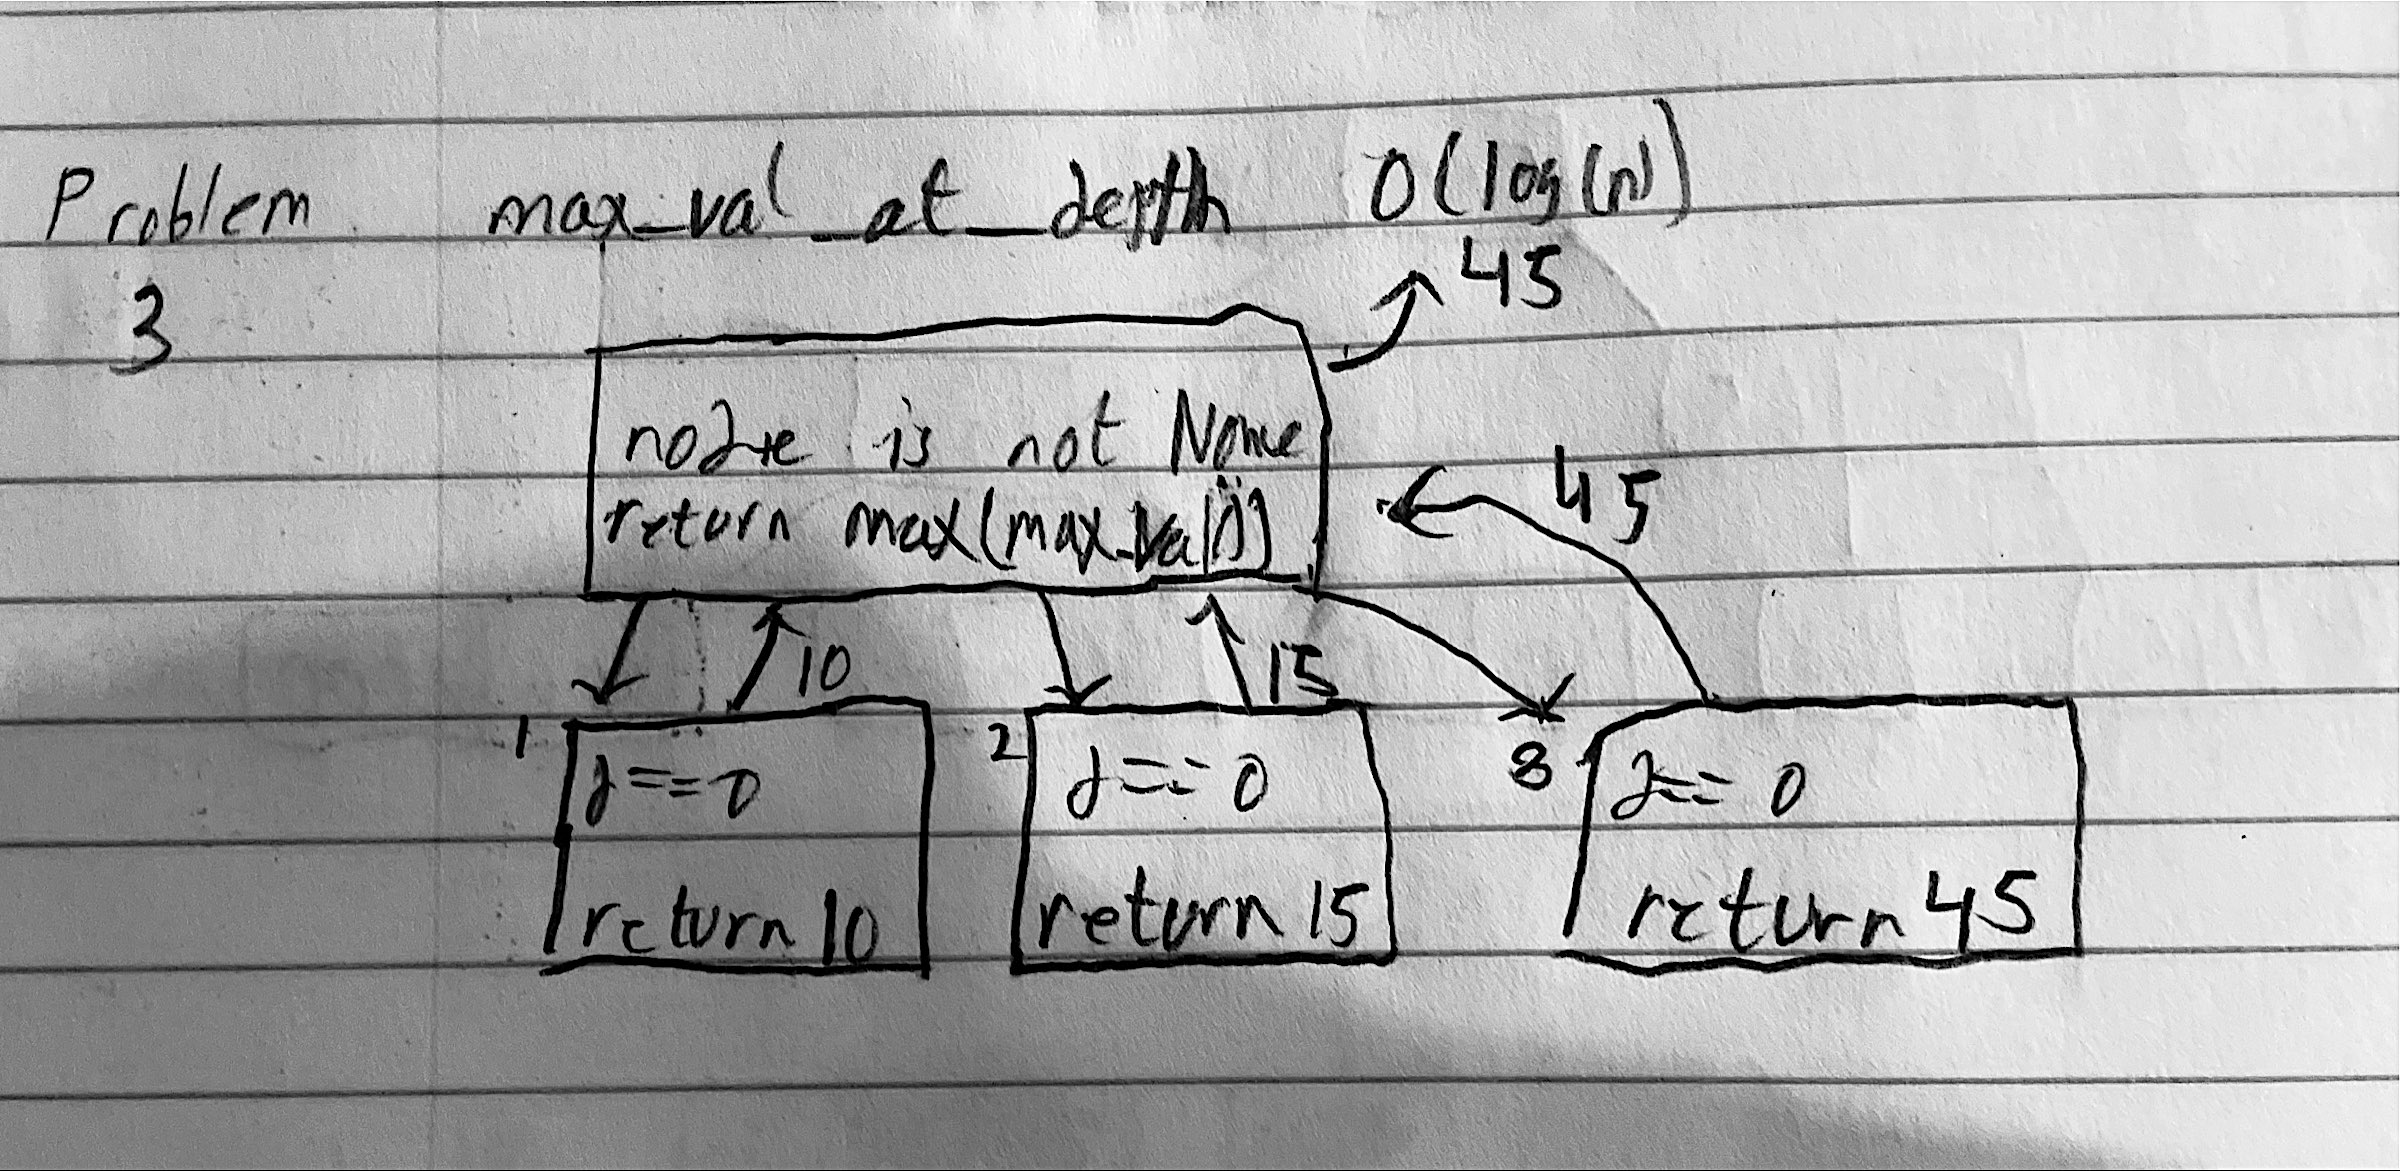 Problem max_val_at_depth O(log(n))
3
45
node is not None
return max(max_val())
45
10
15
1
2
3
d==0
d==0
d==0
return 10
return 15
return 45